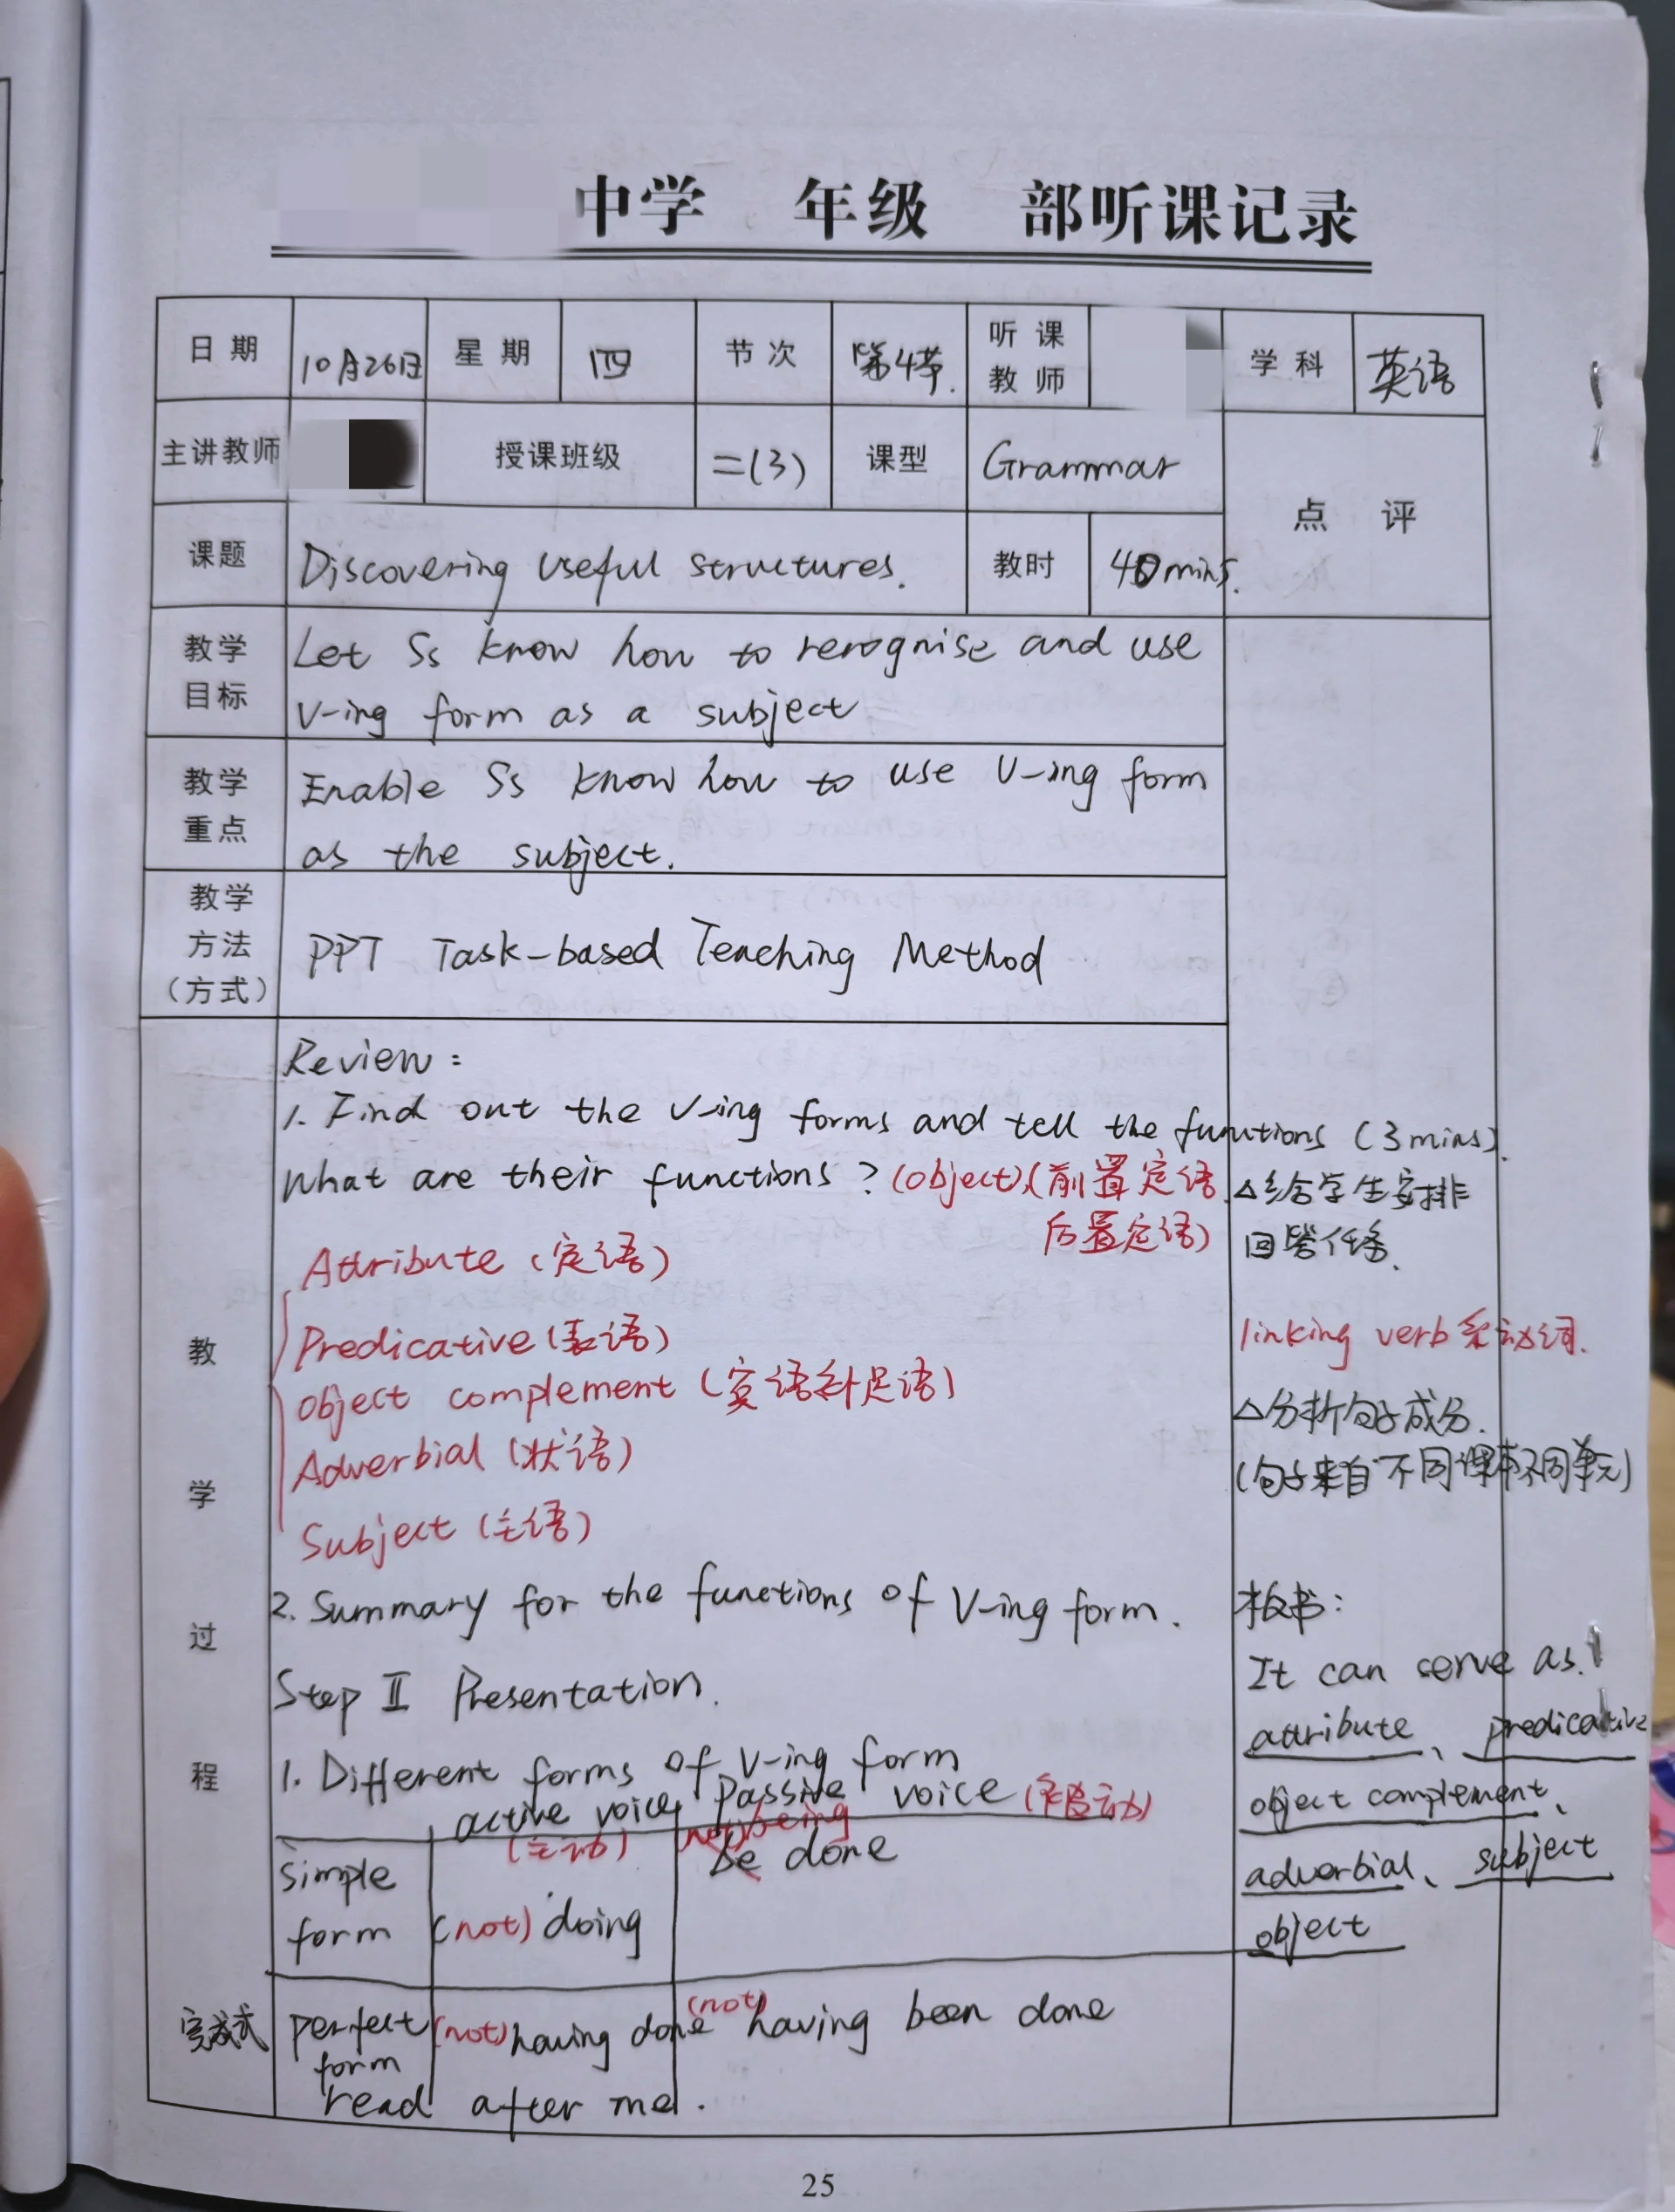 中学 年级 部听课记录
日期 10月26日 星期 四 节次 第4节. 听课教师 学科 英语
主讲教师 授课班级 二(3) 课型 Grammar 点评
课题 Discovering Useful Structures. 教时 40mins.
教学目标
Let Ss know how to recognise and use
V-ing form as a subject
教学重点
Enable Ss know how to use V-ing form
as the subject.
教学方法(方式)
PPT Task-based Teaching Method
教学过程
Review:
1. Find out the V-ing forms and tell the functions (3mins).
What are their functions? (object)、(前置定语
后置定语)
△给学生安排
回答任务.
Attribute (定语)
Predicative (表语)
object complement (宾语补足语)
Adverbial (状语)
Subject (主语)
linking verb 系动词.
△分析句子成分.
(句子来自不同课本不同单元)
2. Summary for the functions of V-ing form.
Step II Presentation.
1. Different forms of V-ing form
active voice passive voice (被动)
(主动) (not) being
simple be done
form (not) doing
完成式 perfect (not) having done (not) having been done
form
read after me.
板书:
It can serve as.
attribute、predicative
object complement、
adverbial、subject
object
25